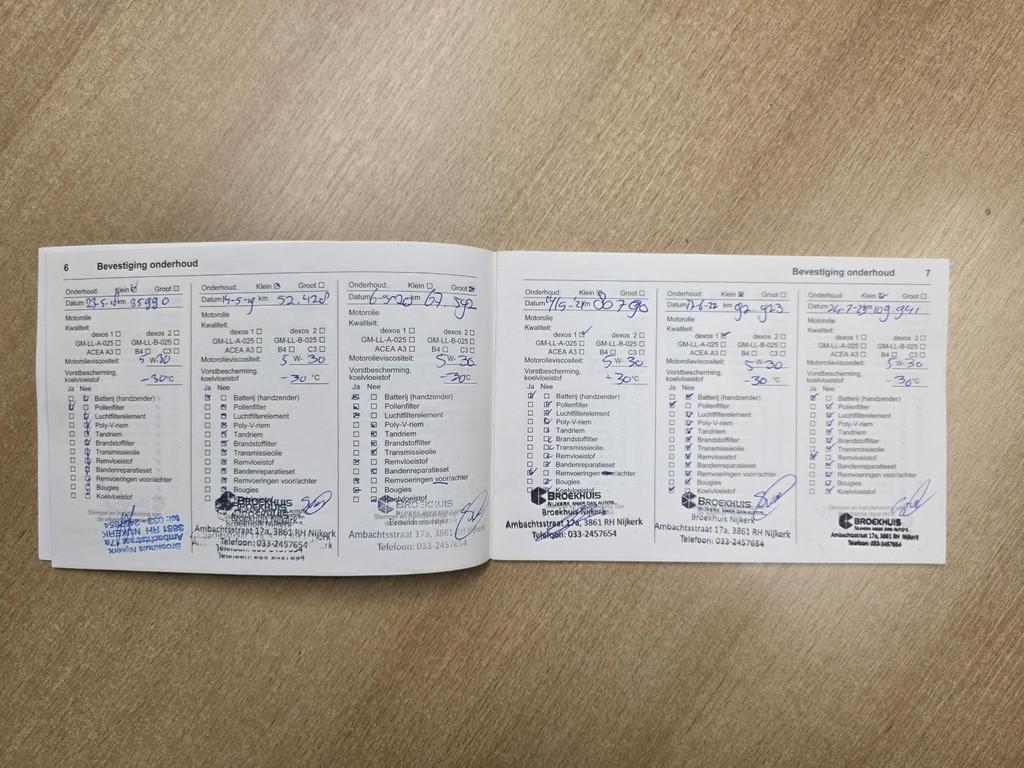 6 Bevestiging onderhoud
Onderhoud: Klein ☑ Groot ☐
Datum 23-5-18 km 35990
Motorolie
Kwaliteit:
dexos 1 ☐ dexos 2 ☐
GM-LL-A-025 ☐ GM-LL-B-025 ☐
ACEA A3 ☐ B4 ☐ C3 ☐
Motorolieviscositeit: 5 W-30
Vorstbescherming,
koelvloeistof -30°C
Ja Nee
Batterij (handzender)
Pollenfilter
Luchtfilterelement
Poly-V-riem
Tandriem
Brandstoffilter
Transmissieolie
Remvloeistof
Bandenreparatieset
Remvoeringen voor/achter
Bougies
Koelvloeistof
Broekhuis Nijkerk
Ambachtsstraat 17a
3861 RH NIJKERK
Tel: 033-2457654
Onderhoud: Klein ☒ Groot ☐
Datum 14-5-19 km 52.428
Motorolie
Kwaliteit:
dexos 1 ☐ dexos 2 ☐
GM-LL-A-025 ☐ GM-LL-B-025 ☐
ACEA A3 ☐ B4 ☐ C3 ☐
Motorolieviscositeit: 5 W-30
Vorstbescherming,
koelvloeistof -30 °C
Ja Nee
Batterij (handzender)
Pollenfilter
Luchtfilterelement
Poly-V-riem
Tandriem
Brandstoffilter
Transmissieolie
Remvloeistof
Bandenreparatieset
Remvoeringen voor/achter
Bougies
BROEKHUIS
Ambachtsstraat 17a, 3861 RH Nijkerk
Telefoon: 033-2457654
Onderhoud: Klein ☐ Groot ☒
Datum 6-5-2020 km 67.592
Motorolie
Kwaliteit:
dexos 1 ☐ dexos 2 ☐
GM-LL-A-025 ☐ GM-LL-B-025 ☐
ACEA A3 ☐ B4 ☐ C3 ☐
Motorolieviscositeit: 5 W-30
Vorstbescherming,
koelvloeistof -30°C
Ja Nee
Batterij (handzender)
Pollenfilter
Luchtfilterelement
Poly-V-riem
Tandriem
Brandstoffilter
Transmissieolie
Remvloeistof
Bandenreparatieset
Remvoeringen voor/achter
Bougies
Koelvloeistof
BROEKHUIS
Broekhuis Nijkerk
Ambachtsstraat 17a, 3861 RH Nijkerk
Telefoon: 033-2457654
Bevestiging onderhoud 7
Onderhoud: Klein ☒ Groot ☐
Datum 14/5-21 km 80790
Motorolie
Kwaliteit:
dexos 1 ☑ dexos 2 ☐
GM-LL-A-025 ☐ GM-LL-B-025 ☐
ACEA A3 ☐ B4 ☐ C3 ☐
Motorolieviscositeit: 5 W-30
Vorstbescherming,
koelvloeistof -30°C
Ja Nee
Batterij (handzender)
Pollenfilter
Luchtfilterelement
Poly-V-riem
Tandriem
Brandstoffilter
Transmissieolie
Remvloeistof
Bandenreparatieset
Remvoeringen voor/achter
Bougies
Koelvloeistof
BROEKHUIS
NIJKERK MEER DAN AUTO'S...
Broekhuis Nijkerk
Ambachtsstraat 17a, 3861 RH Nijkerk
Telefoon: 033-2457654
Onderhoud: Klein ☒ Groot ☐
Datum 17-6-22 km 92.923
Motorolie
Kwaliteit:
dexos 1 ☑ dexos 2 ☐
GM-LL-A-025 ☐ GM-LL-B-025 ☐
ACEA A3 ☐ B4 ☐ C3 ☐
Motorolieviscositeit: 5 W-30
Vorstbescherming,
koelvloeistof -30 °C
Ja Nee
Batterij (handzender)
Pollenfilter
Luchtfilterelement
Poly-V-riem
Tandriem
Brandstoffilter
Transmissieolie
Remvloeistof
Bandenreparatieset
Remvoeringen voor/achter
Bougies
Koelvloeistof
BROEKHUIS
NIJKERK MEER DAN AUTO'S...
Broekhuis Nijkerk
Ambachtsstraat 17a, 3861 RH Nijkerk
Telefoon: 033-2457654
Onderhoud: Klein ☑ Groot ☐
Datum 24-7-23 km 109.941
Motorolie
Kwaliteit:
dexos 1 ☐ dexos 2 ☐
GM-LL-A-025 ☐ GM-LL-B-025 ☐
ACEA A3 ☐ B4 ☐ C3 ☐
Motorolieviscositeit: 5 W-30
Vorstbescherming,
koelvloeistof -30°C
Ja Nee
Batterij (handzender)
Pollenfilter
Luchtfilterelement
Poly-V-riem
Tandriem
Brandstoffilter
Transmissieolie
Remvloeistof
Bandenreparatieset
Remvoeringen voor/achter
Bougies
Koelvloeistof
BROEKHUIS
Ambachtsstraat 17a, 3861 RH Nijkerk
Telefoon: 033-2457654